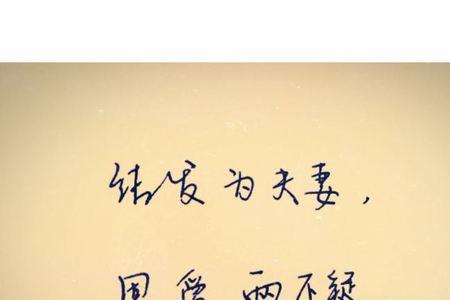 结发为夫妻，
恩爱两不疑